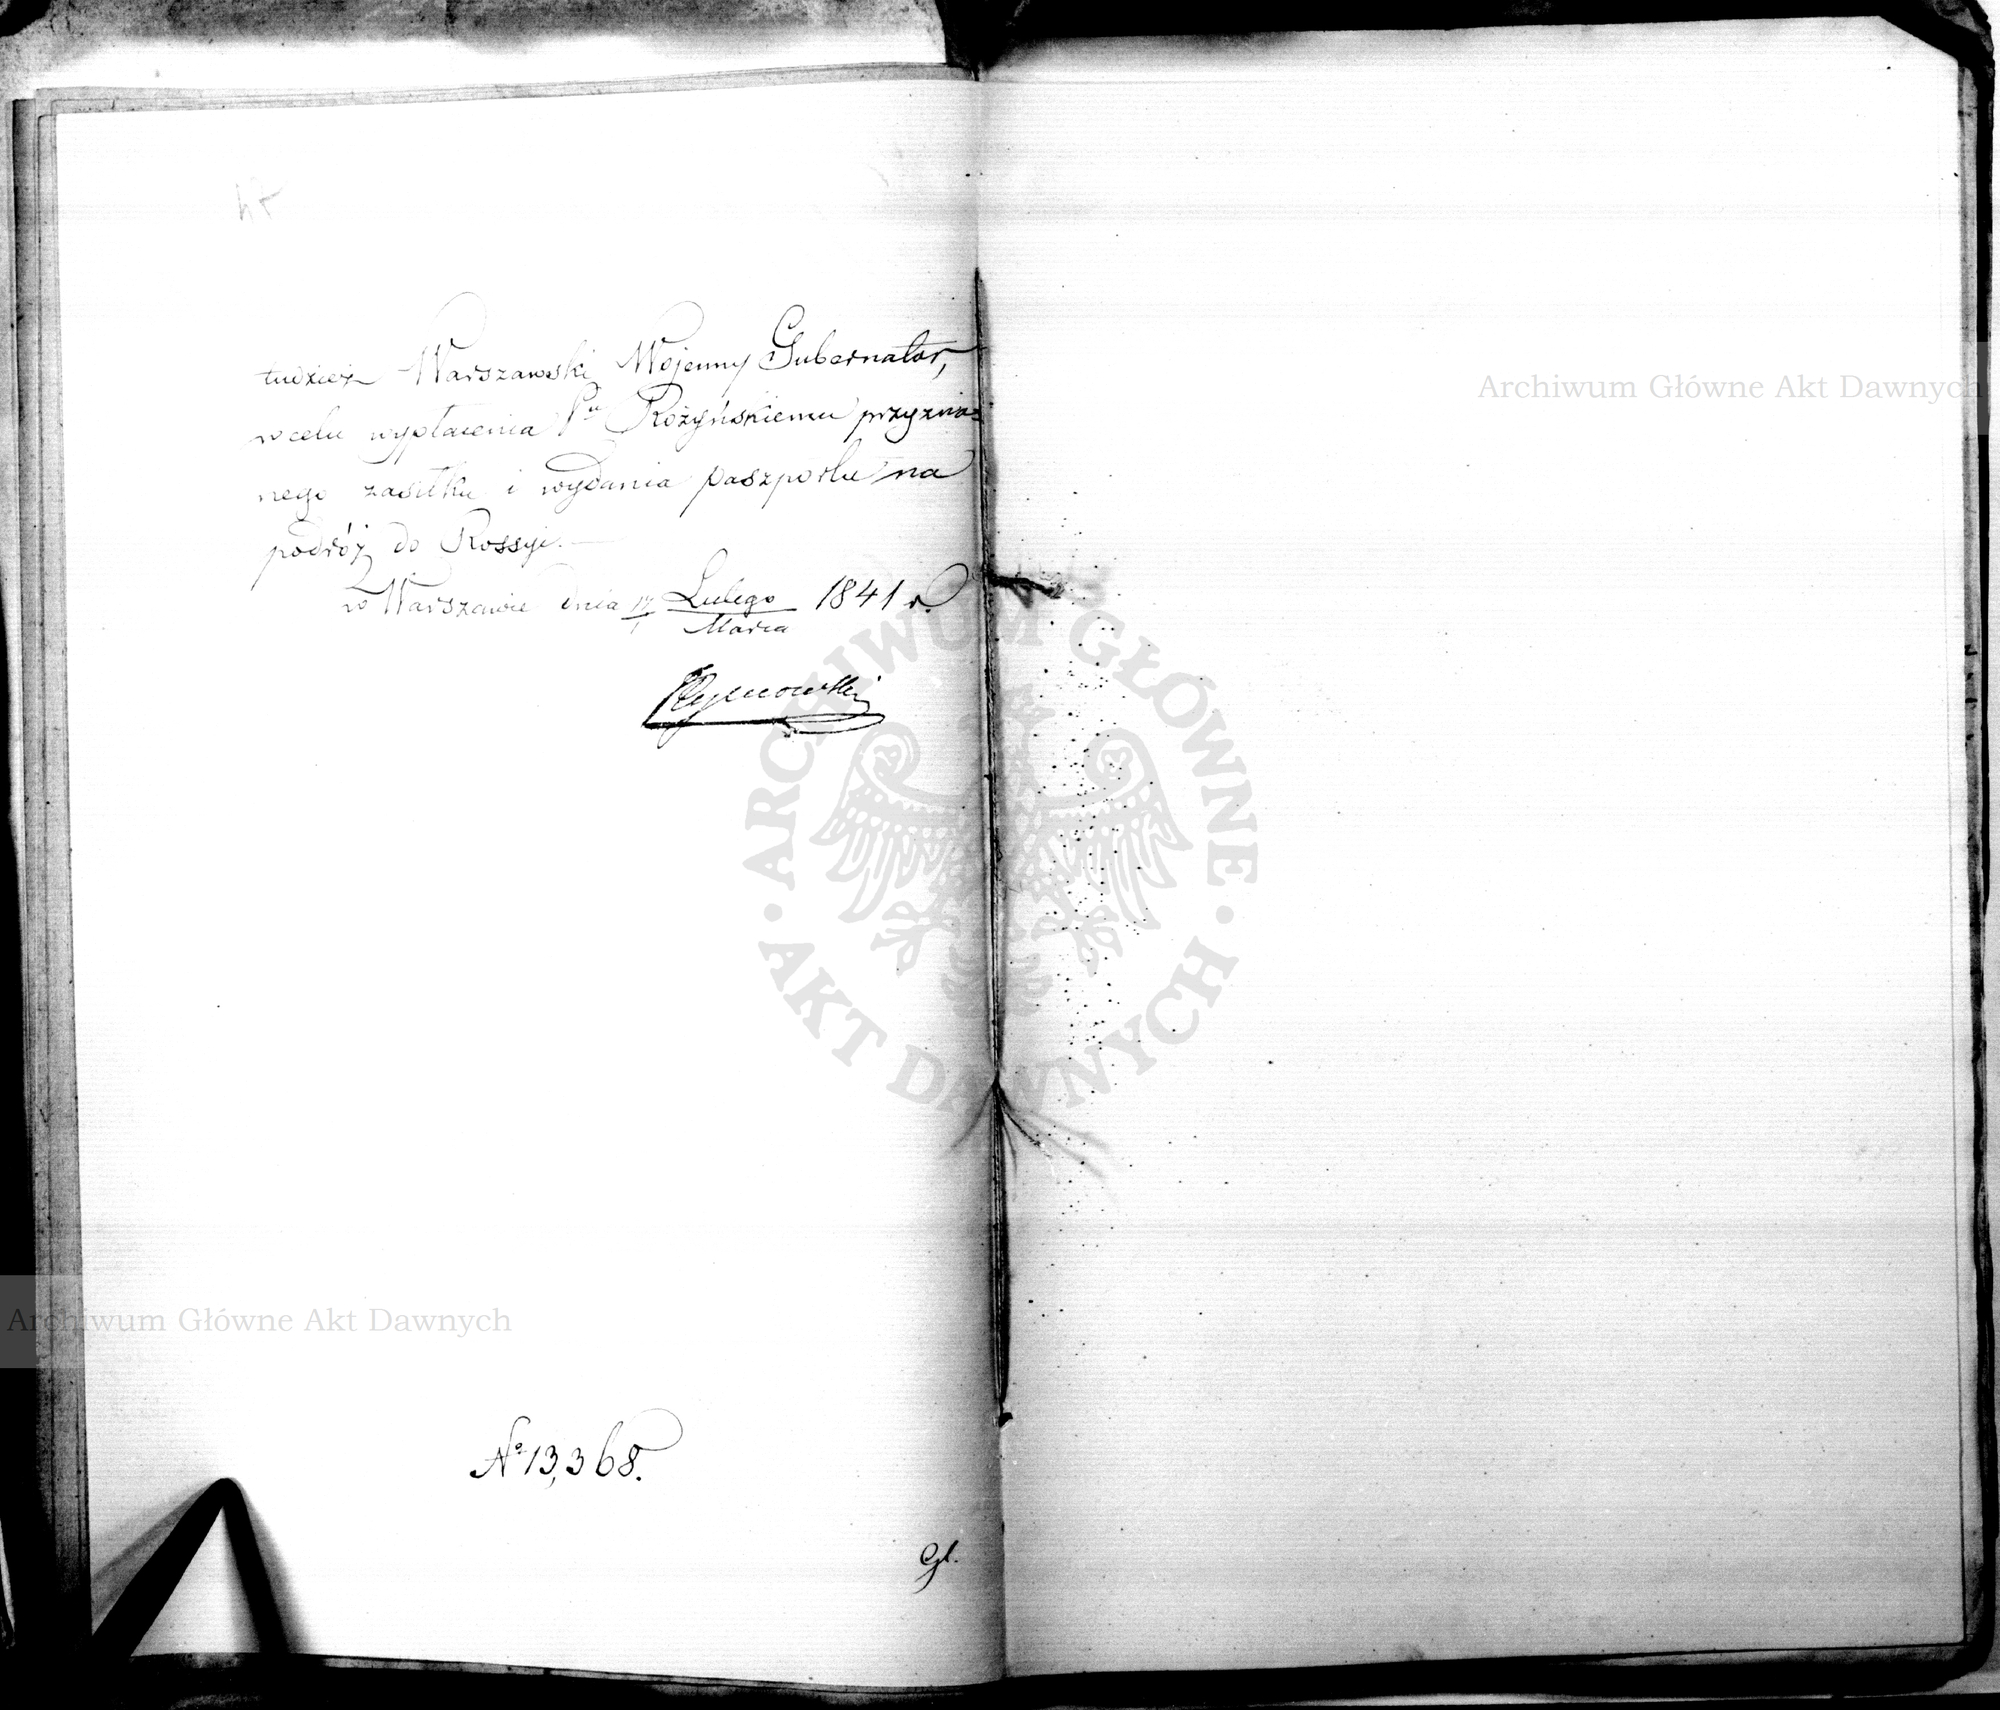 tudzież Warszawski Wojenny Gubernator,
w celu wypłacenia Pu Rożyńskiemu przyzna=
nego zasiłku i wydania paszportu na
podróż do Rossyi. —
w Warszawie dnia 17/1 Lutego/Marca 1841 r.
№ 13,368.
Gł.
Archiwum Główne Akt Dawnych
Archiwum Główne Akt Dawnych
ARCHIWUM GŁÓWNE · AKT DAWNYCH ·